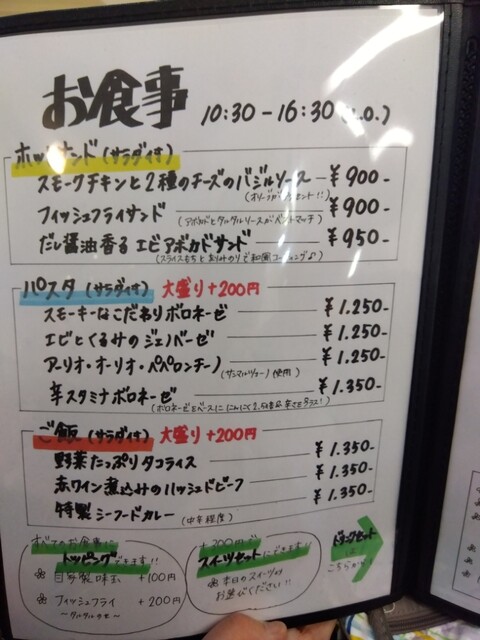 お食事 10:30-16:30(L.O.)
ホットサンド(サラダ付)
スモークチキンと2種のチーズのバジルソース ¥900-
(オリーブがアクセント!!)
フィッシュフライサンド ¥900-
(アボカドとタルタルソースがベストマッチ)
だし醤油香るエビアボカドサンド ¥950-
(スライスもちときざみのりで和風コーティング♪)
パスタ(サラダ付) 大盛り+200円
スモーキーなこだわりボロネーゼ ¥1.250-
エビとくるみのジェノベーゼ ¥1.250-
アーリオ・オーリオ・ペペロンチーノ (サンマルツァーノ使用) ¥1.250-
辛スタミナボロネーゼ ¥1.350-
(ボロネーゼをベースににんにく2.5倍 辛さをプラス!)
ご飯(サラダ付) 大盛り+200円
野菜たっぷりタコライス ¥1.350-
赤ワイン煮込みのハッシュドビーフ ¥1.350-
特製シーフードカレー (中辛程度) ¥1.350-
すべてのお食事に
トッピングできます!!
自家製味玉 +100円
フィッシュフライ +200円
〜タルタルのせ〜
+200円で
スイーツセットにできます!
本日のスイーツから
お選びください!!
ドリンクセット
は
こちらから